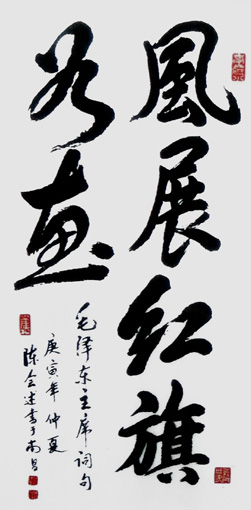 風展红旗
如画
毛泽东主席词句
庚寅年仲夏
陈会进书于南昌